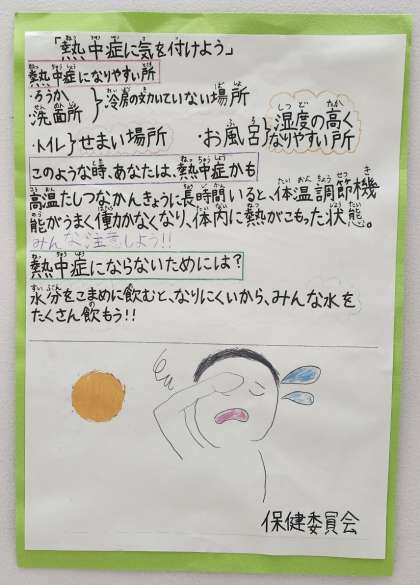 「熱中症に気を付けよう」
熱中症になりやすい所
・ろうか
・洗面所
}冷房の効いていない場所
・トイレ}せまい場所
・お風呂}湿度の高くなりやすい所
このような時、あなたは、熱中症かも
高温たしつなかんきょうに長時間いると、体温調節機
能がうまく働かなくなり、体内に熱がこもった状態。
みんな注意しよう!!
熱中症にならないためには?
水分をこまめに飲むと、なりにくいから、みんな水を
たくさん飲もう!!
保健委員会